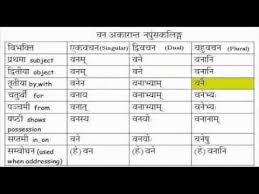 वन अकारान्त नपुंसकलिङ्ग
विभक्ति एकवचन(Singular) द्विवचन (Dual) वहुवचन (Plural)
प्रथमा subject वनम् वने वनानि
द्वितीया object वनम् वने वनानि
तृतीया by,with वनेन वनाभ्याम् वनैः
चतुर्थी for वनाय वनाभ्याम् वनेभ्यः
पञ्चमी from वनात् वनाभ्याम् वनेभ्यः
षष्ठी shows possession वनस्य वनयोः वनानाम्
सप्तमी in, on वने वनयोः वनेषु
सम्वोधन (used when addressing) (हे) वन (हे) वने (हे) वनानि